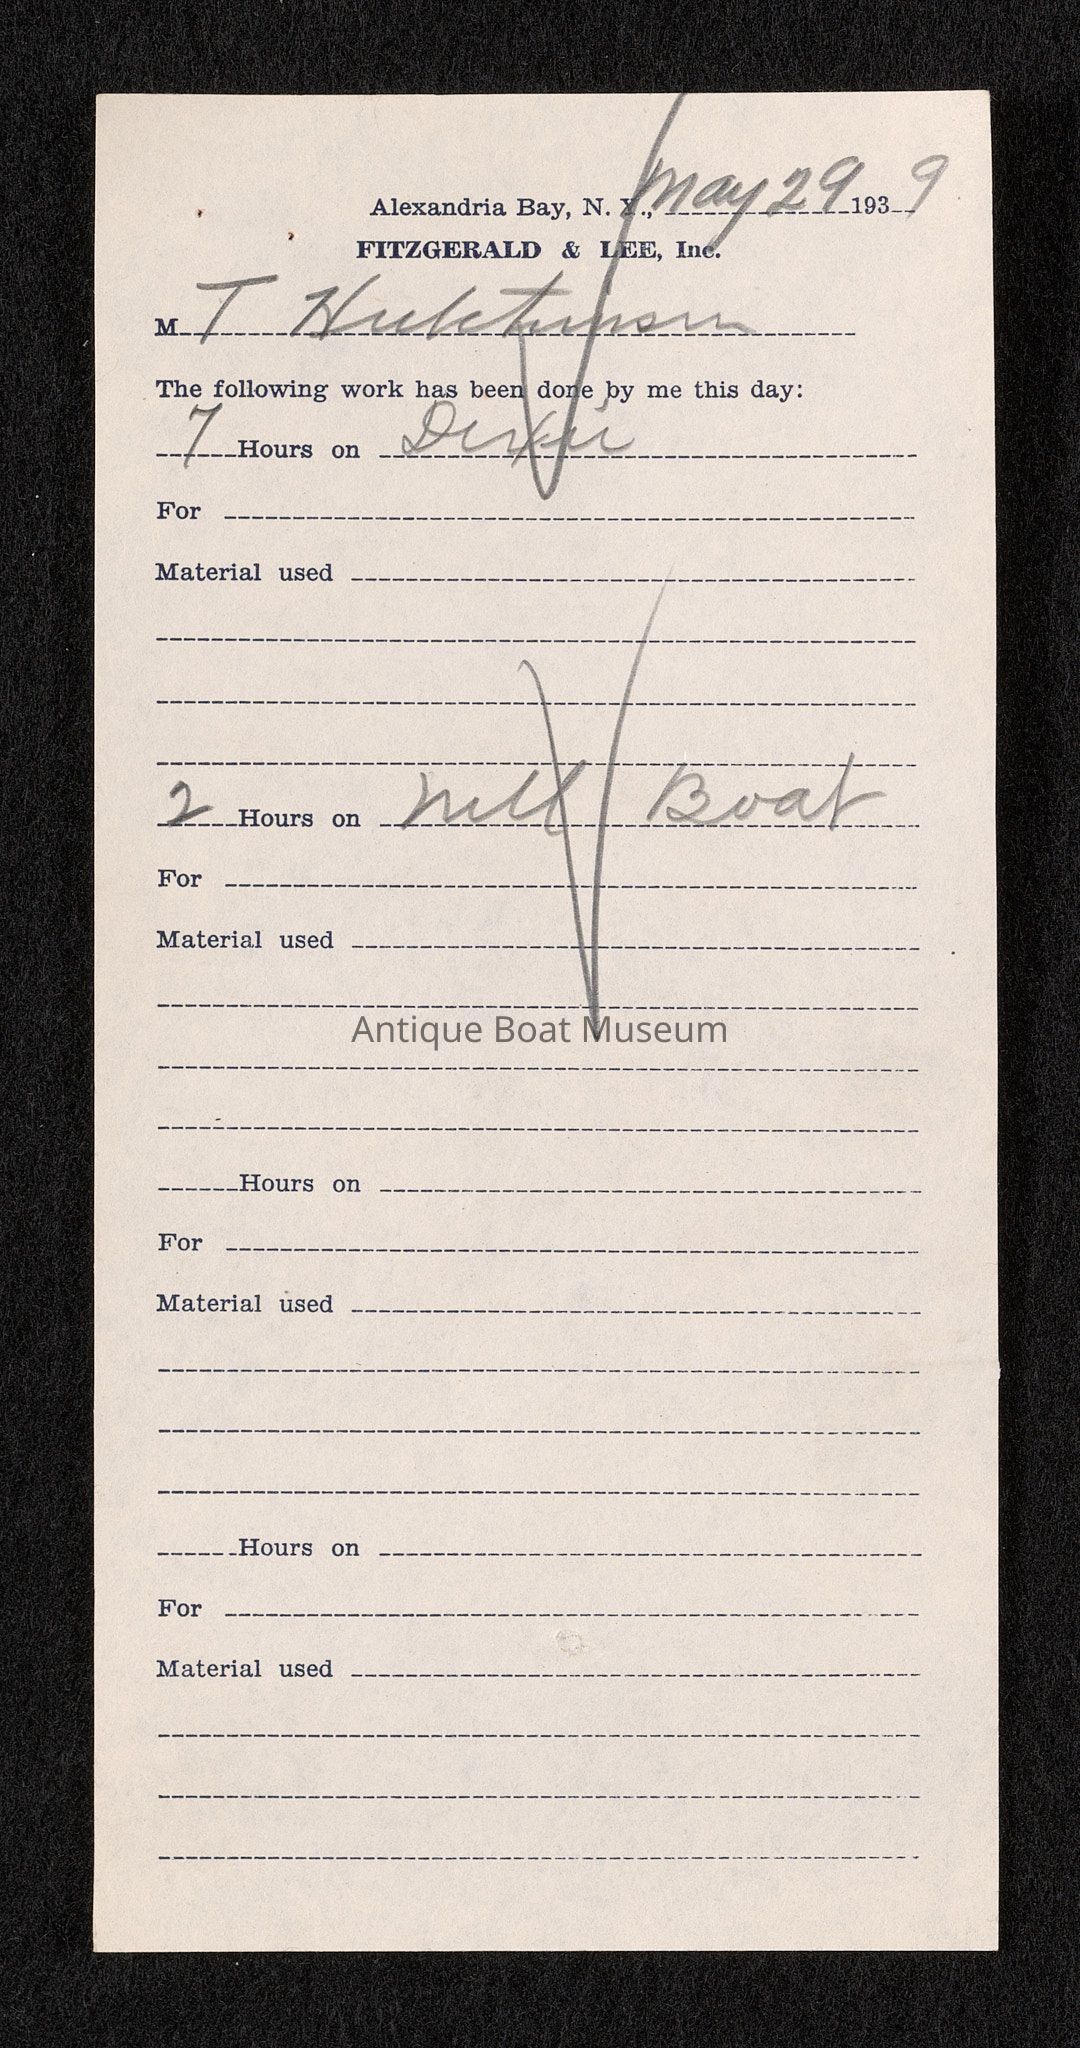 Alexandria Bay, N. Y., May 29 1939
FITZGERALD & LEE, Inc.
M T Hutchinson
The following work has been done by me this day:
7 Hours on Dixie
For
Material used
2 Hours on Boat
For
Material used
Antique Boat Museum
Hours on
For
Material used
Hours on
For
Material used